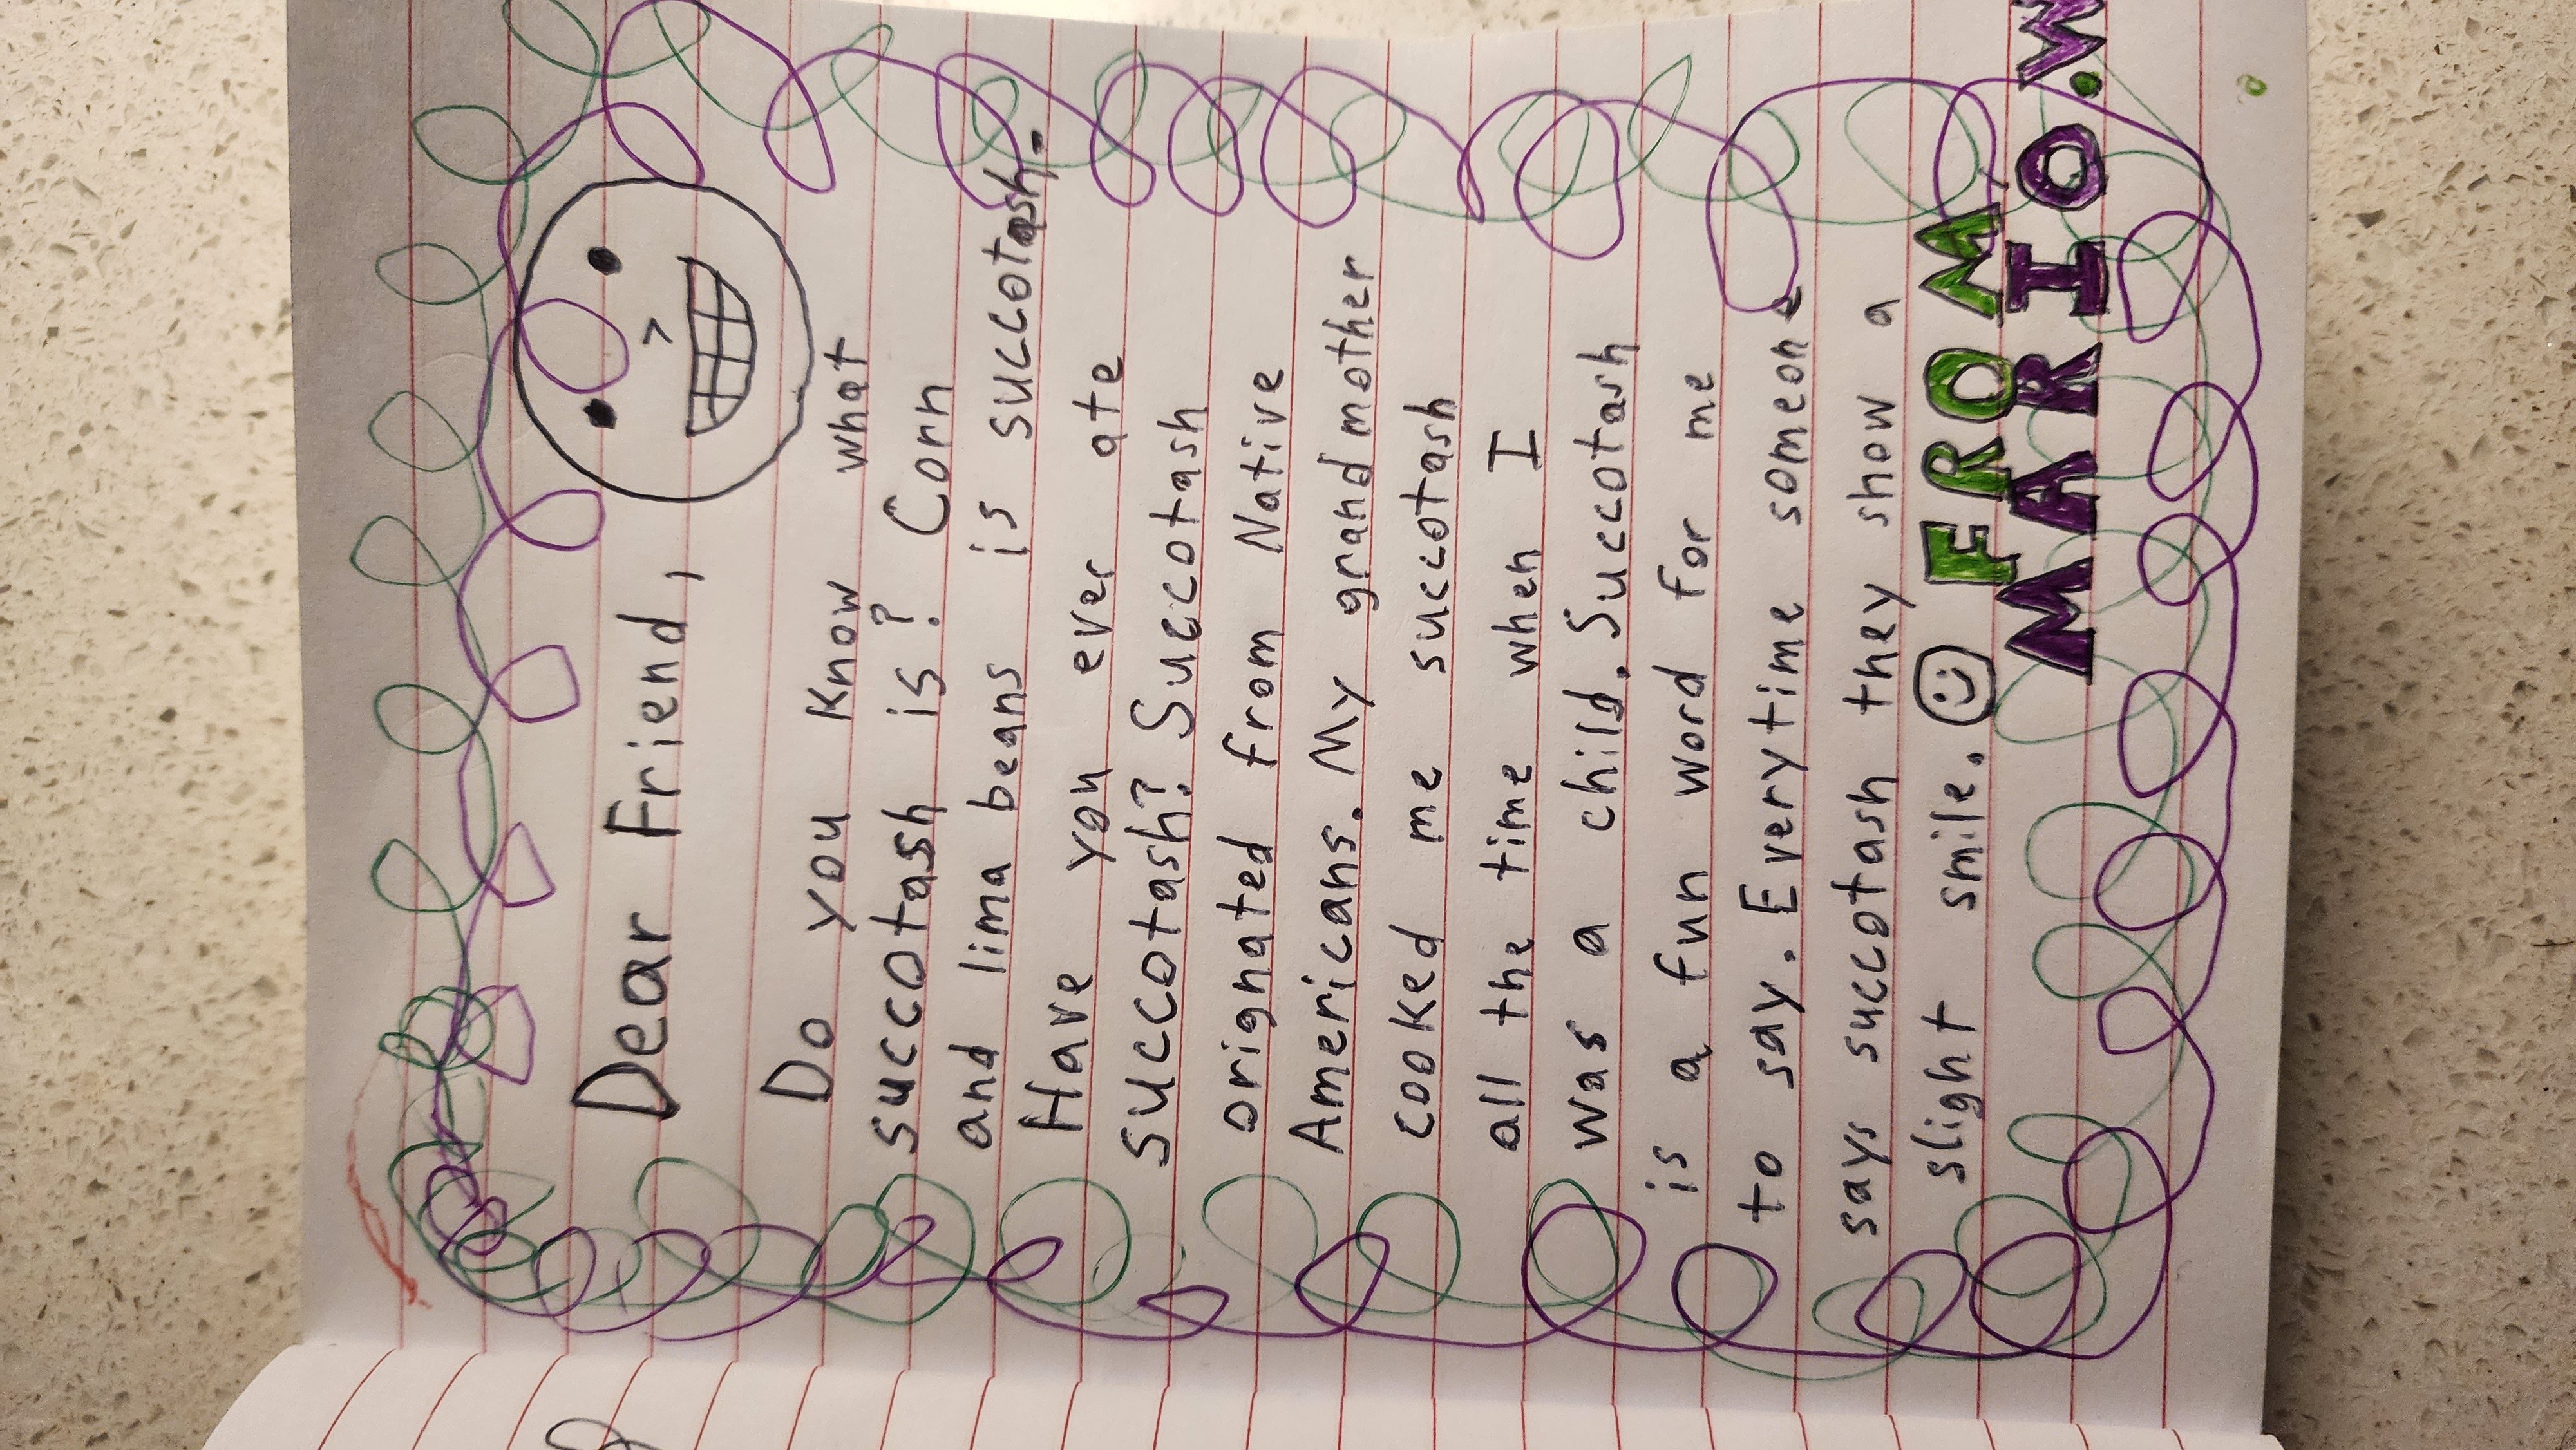 Dear Friend,
Do you know what
succotash is? Corn
and lima beans is succotash.
Have you ever ate
succotash? Succotash
orignated from Native
Americans. My grandmother
cooked me succotash
all the time when I
was a child. Succotash
is a fun word for me
to say. Everytime someone
says succotash they show a
slight smile. FROM
MARIO.W